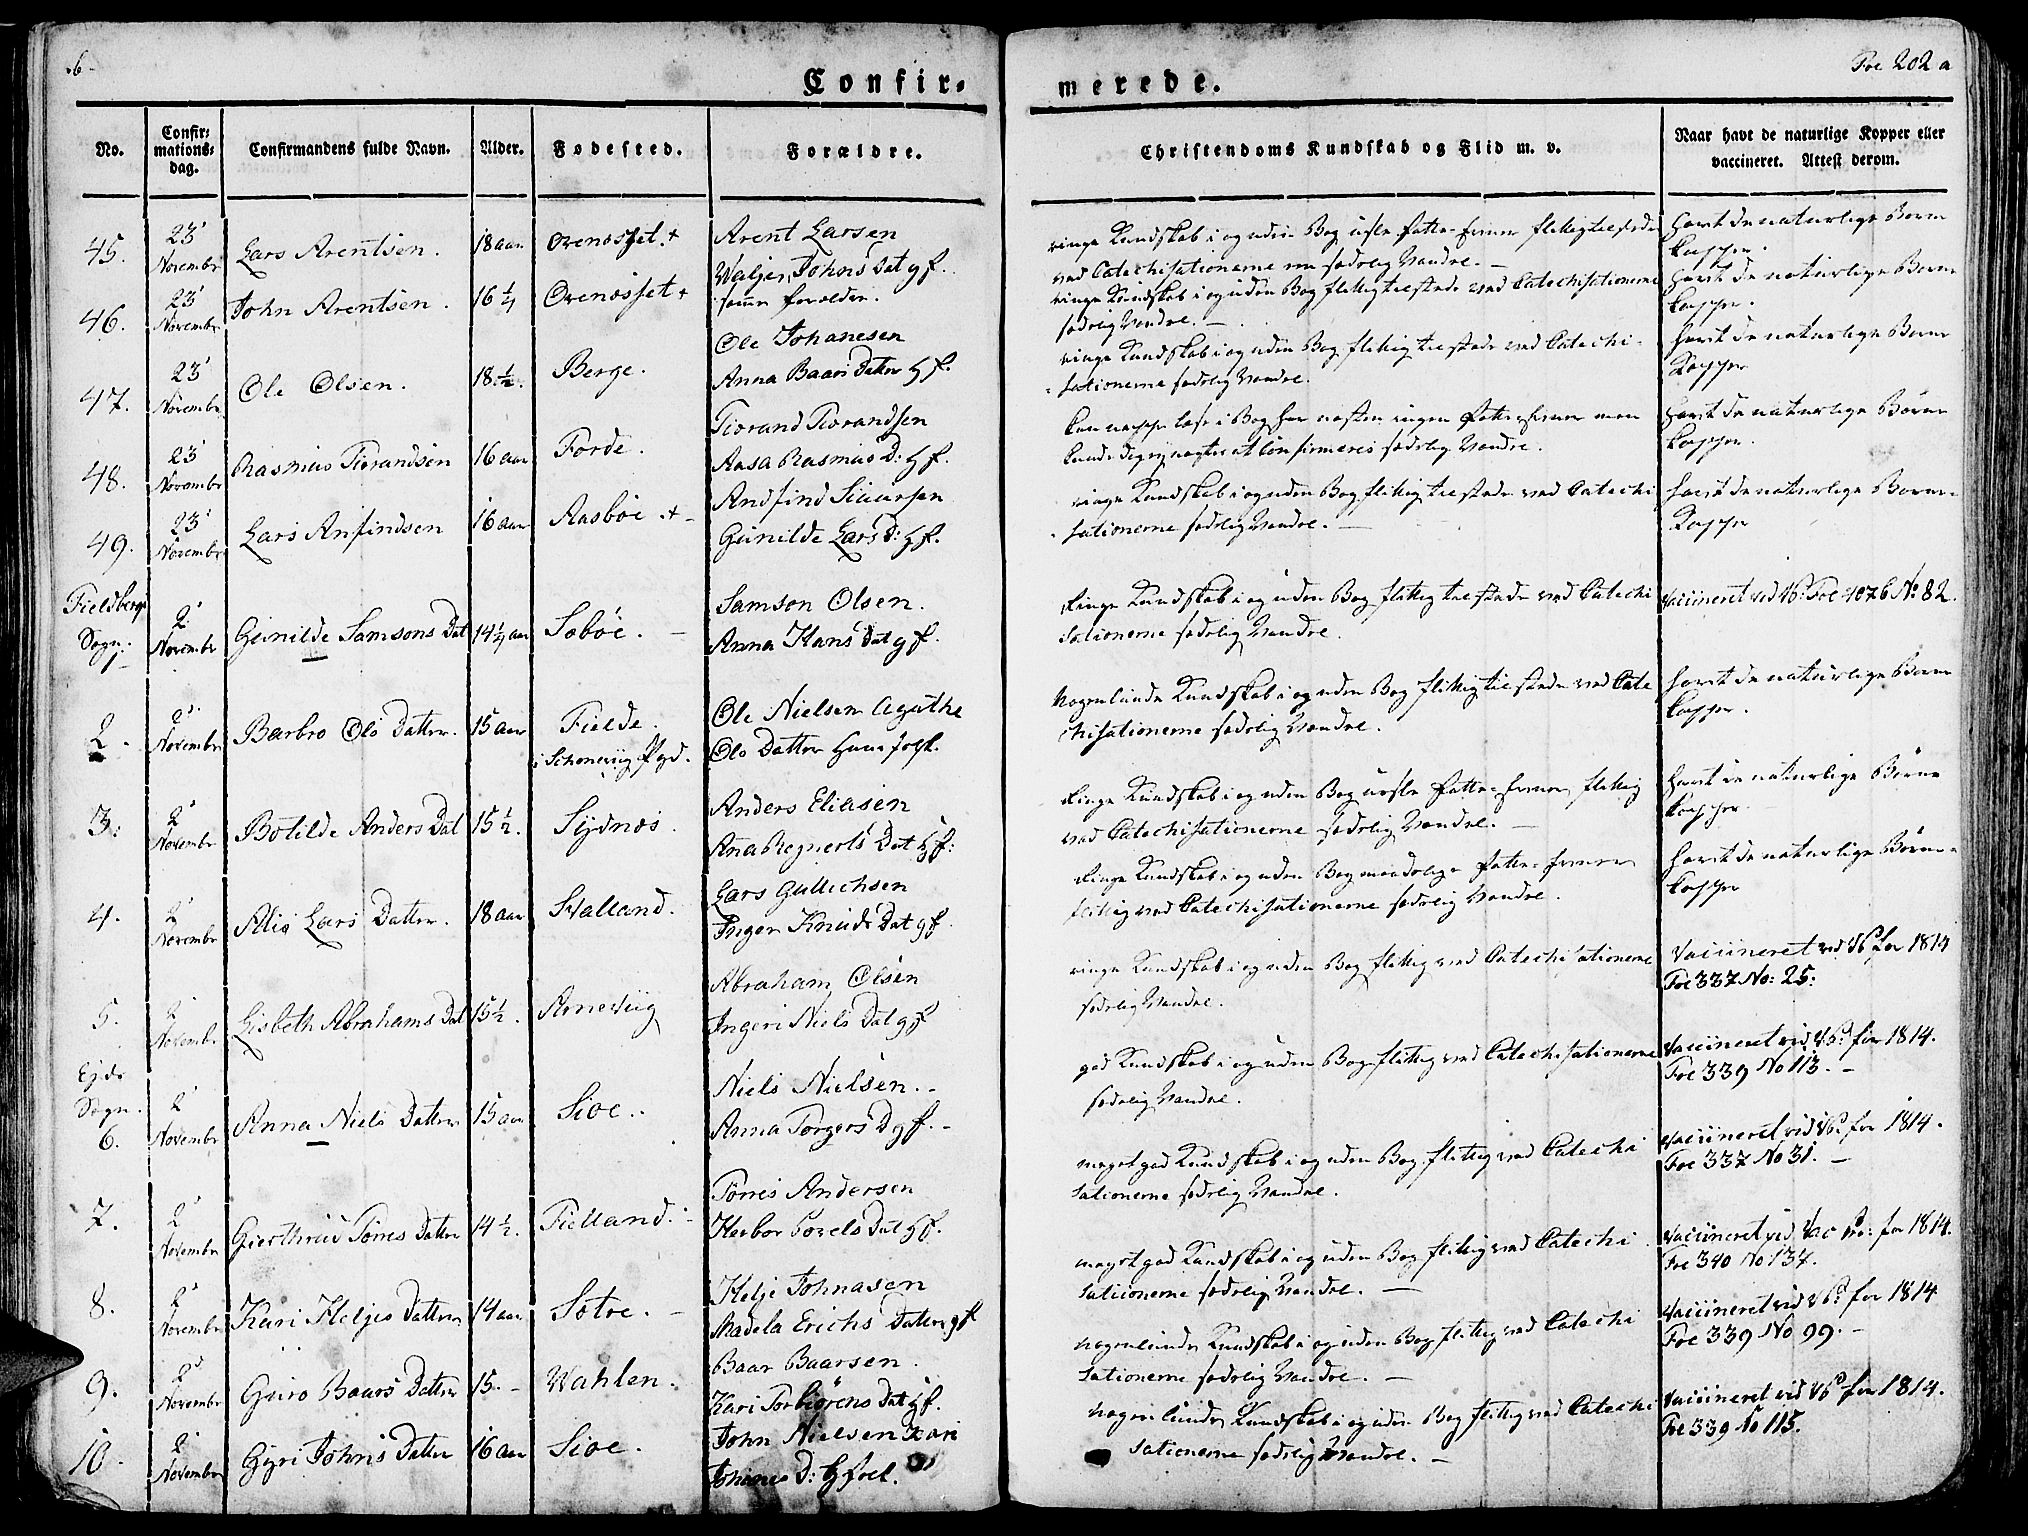 6
Foe 202 a
Confir-
merede.
No.
Confir-
mations-
dag.
Confirmandens fulde Navn.
Alder.
Fødested.
Forældre.
Christendoms Kundskab og Flid m. v.
Naar havt de naturlige Kopper eller
vaccineret. Attest derom.
45. 23' Novembr Lars Arentsen. 18 aar Arent Larsen
Johns Dat g f.
ringe Kundskab i og uden Bog
ved Catechisationerne sædelig Vandel.
havt de naturlige Børne
Kopper.
46. 23' Novembr John Arentsen. 16 1/4 samme forældre.
ringe Kundskab i og uden Bog flittig tilstede ved Catechisationerne
sædelig Vandel.
havt de naturlige Børne
Kopper.
47. 23' Novembr Ole Olsen. 18 1/2. Berge. Ole Johanesen
Anna Baars Datter H f.
ringe Kundskab i og uden Bog flittig tilstede ved Catechi-
sationerne sædelig Vandel.
havt de naturlige Børne
Kopper
48. 23' Novembr Rasmus Tiorandsen 16 aar Forde. Tiorand Tiorandsen
Aasa Rasmus D: H f.
sædelig Vandel.
havt de naturlige Børne
Kopper.
49. 23' Novembr Lars Anfindsen 16 aar Aasböe + Andfind Siuursen
Gunilde Lars D: H f.
ringe Kundskab i og uden Bog flittig tilstede ved Catechi
sationerne sædelig Vandel.
havt de naturlige Børne-
Kopper
Fieldbergs
Sogn:
1 2' Novembr Gunilde Samsons Dat 14 1/4 aar Soböe. Samson Olsen.
Anna Hans Dat g f.
Ringe Kundskab i og uden Bog flittig tilstede ved Catechi
sationerne sædelig Vandel.
vaccineret ved Foe 4076 No 82.
2. 2' Novembr Barbro Ols Datter. 15 aar Fielde
i Schonevig Pgd. Ole Nielsen Agathe
Ols Datter
Nogenlunde Kundskab i og uden Bog flittig tilstede ved Cate
chisationerne sædelig Vandel.
havt de naturlige Børne
Kopper.
3: 2' Novembr Botilde Anders Dat 15 1/2. Sydnæs. Anders Eliasen
Ana Regnerts Dat H f:
Ringe Kundskab i og uden Bog flittig
ved Catechisationerne sædelig Vandel.
havt de naturlige Børne
Kopper
4. 2' Novembr Alis Lars Datter. 18 aar Lars Gullichsen
Inger Knuds Dat g f.
Ringe Kundskab i og uden Bog
flittig ved Catechisationerne sædelig Vandel.
havt de naturlige Børne-
Kopper
5. 2' Novembr Lisbeth Abrahams Dat 15 1/2. Arneviig Abraham Olsen
Ingeri Niels Dat g f
ringe Kundskab i og uden Bog flittig ved Catechisationerne
sædelig Vandel.
Vaccineret ved for 1814
Foe 337 No: 25:
Ejde
Sogn.
6. 2' Novembr Anna Niels Datter 15 aar Sioe.. Niels Nielsen.
Anna Torgers D g f.
god Kundskab i og uden Bog flittig ved Catechisationerne
sædelig Vandel.
Vaccineret ved for 1814.
Foe 339 No 113.
7. 2' Novembr Gierthrud Törres Datter 14 1/2. Fielland. Törres Andersen
Herbor Povels Dat H f.
meget god Kundskab i og uden Bog flittig ved Catechi
sationerne sædelig Vandel.
Vaccineret ved for 1814.
Foe 337 No 31.
8. 2' Novembr Kari Heljes Datter 14 aar Sotre. Helje Johnasen
Madela Erichs Datter g f
meget god Kundskab i og uden Bog flittig ved Catechi
sationerne sædelig Vandel.
Vaccineret ved Vac Pro: for 1814.
Foe 340 No 137.
9. 2' Novembr Guro Baars Datter 15. Wahlen. Baar Baarsen.
Kari Torbiörens Dat H f.
nogenlunde Kundskab i og uden Bog flittig ved Catechi
sationerne sædelig Vandel.
Vaccineret ved for 1814
Foe 339 No 99.
10. 2' Novembr Gyri Johns Datter 16 aar Sioe. John Nielsen Kari
D:
nogenlunde Kundskab i og uden Bog flittig ved Catechi
sationerne sædelig Vandel.
Vaccineret ved for 1814.
Foe 339 No 115.